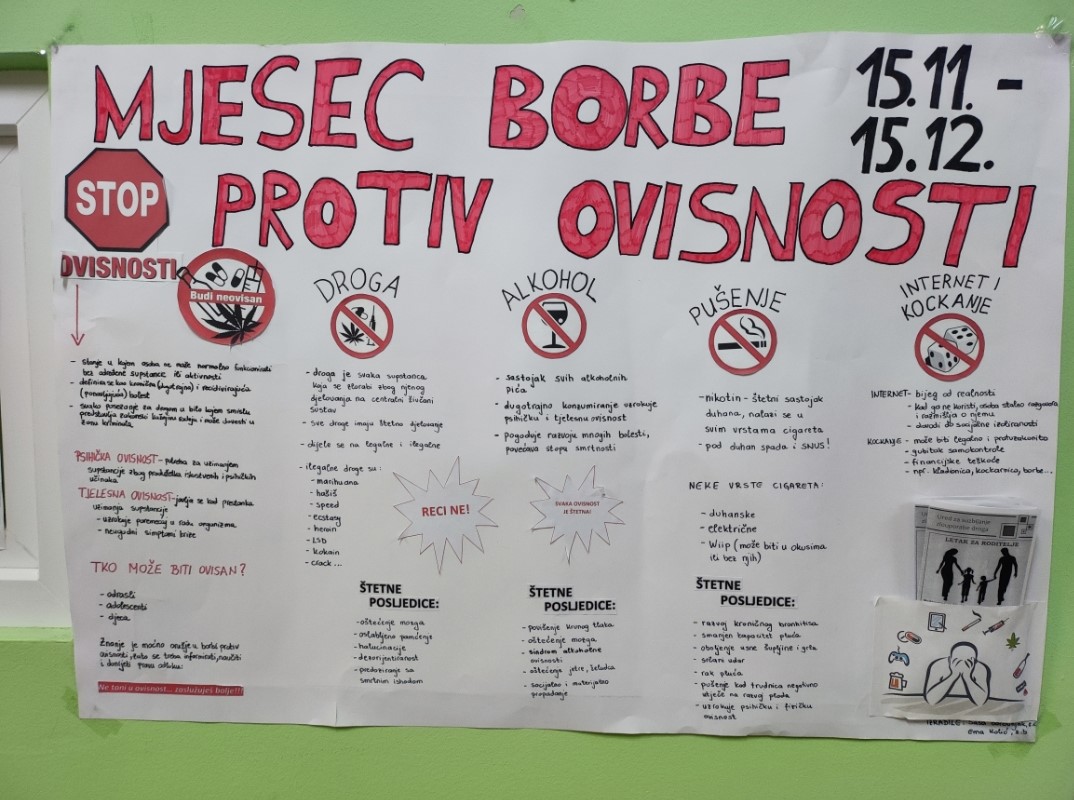 MJESEC BORBE
15.11. -
15.12.
PROTIV OVISNOSTI
STOP
OVISNOSTI
Budi neovisan
- stanje u kojem osoba ne može normalno funkcionirati
bez određene supstance ili aktivnosti
- definira se kao kronična (dugotrajna) i recidivirajuća
(ponavljajuća) bolest
- svako posezanje za drogom u bilo kojem smislu
predstavlja zakonski kažnjivo djelo i može dovesti u
zonu kriminala
PSIHIČKA OVISNOST - potreba za uzimanjem
supstancije zbog iskustvenih i psihičkih
učinaka
TJELESNA OVISNOST - javlja se kod prestanka
uzimanja supstancije
- uzrokuje poremećaj u radu organizma
- neugodni simptomi krize
TKO MOŽE BITI OVISAN?
- odrasli
- adolescenti
- djeca
Znanje je moćno oružje u borbi protiv
ovisnosti, zato se treba informirati, naučiti
i donijeti pravu odluku.
Ne toni u ovisnost... zaslužuješ bolje!!!
DROGA
- droga je svaka supstanca
koja se zlorabi zbog njenog
djelovanja na centralni živčani
sustav
- sve droge imaju štetno djelovanje
- dijele se na legalne i ilegalne
- ilegalne droge su:
- marihuana
- hašiš
- speed
- ecstasy
- heroin
- LSD
- kokain
- crack...
RECI NE!
ŠTETNE
POSLJEDICE:
- oštećenje mozga
- oslabljeno pamćenje
- halucinacije
- dezorijentiranost
- predoziranje sa
smrtnim ishodom
ALKOHOL
- sastojak svih alkoholnih
pića
- dugotrajno konzumiranje uzrokuje
psihičku i tjelesnu ovisnost
- pogoduje razvoju mnogih bolesti,
povećava stopu smrtnosti
SVAKA OVISNOST
JE ŠTETNA!
ŠTETNE
POSLJEDICE:
- povišenje krvnog tlaka
- oštećenje mozga
- sindrom alkoholne
ovisnosti
- oštećenja jetre, želudca
- socijalno i materijalno
propadanje
PUŠENJE
- nikotin - štetni sastojak
duhana, nalazi se u
svim vrstama cigareta
- pod duhan spada i SNUS!
NEKE VRSTE CIGARETA:
- duhanske
- električne
- Wiip (može biti u okusima
ili bez njih)
ŠTETNE
POSLJEDICE:
- razvoj kroničnog bronhitisa
- smanjen kapacitet pluća
- oboljenje usne šupljine i grla
- srčani udar
- rak pluća
- pušenje kod trudnica negativno
utječe na razvoj ploda
- uzrokuje psihičku i fizičku
ovisnost
INTERNET I
KOCKANJE
INTERNET - bijeg od realnosti
- kad ga ne koristi, osoba stalno razgovara
i razmišlja o njemu
- dovodi do socijalne izoliranosti
KOCKANJE - može biti legalno i protuzakonito
- gubitak samokontrole
- financijske teškoće
- npr. kladionica, kockarnica, borbe...
Ured za suzbijanje
zlouporabe droga
LETAK ZA RODITELJE
IZRADILE:
Ema Kolić,